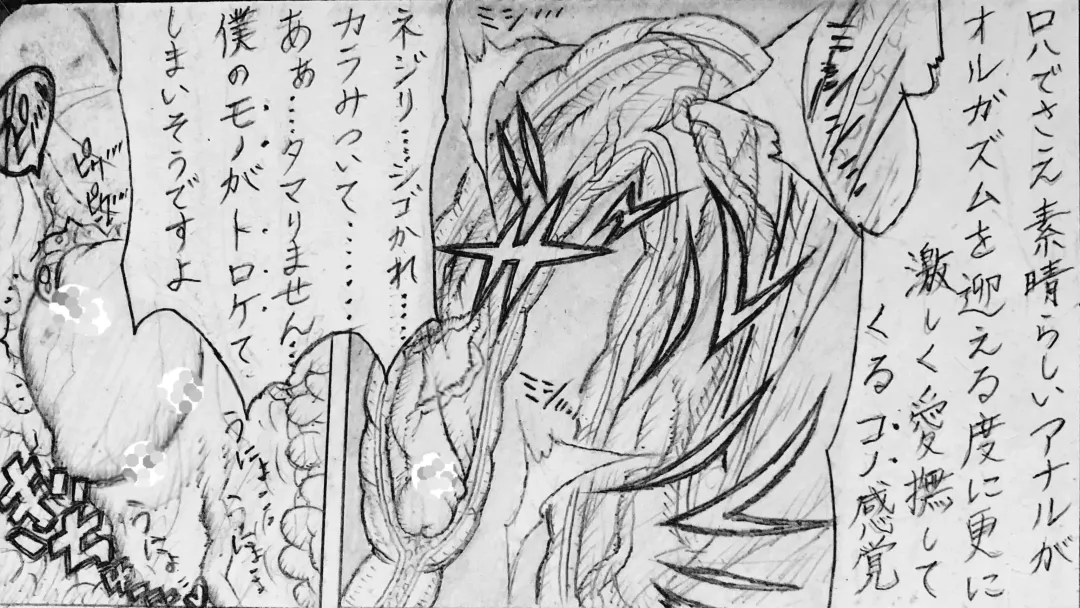 ロハでさえ素晴らしいアナルが
オルガズムを迎える度に更に
激しく愛撫して
くるコノ感覚
ミシ
ネジり……シゴかれ……
カラみついて………
あぁ…タマりません……
僕のモノがトロケて
しまいそうですよ
ピク
ピク
うにょ
うにょ
うにょ